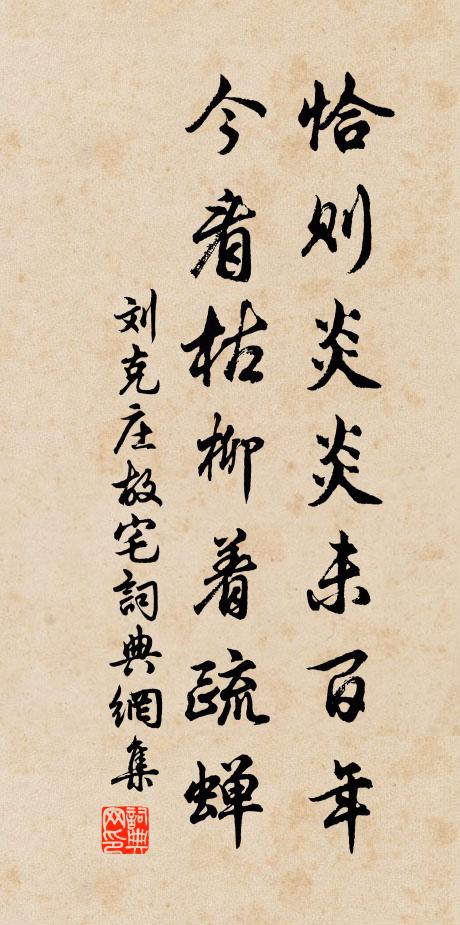 恰则炎炎未百年
今看枯柳着疏蝉
刘克庄故宅詞典網集
詞典网印